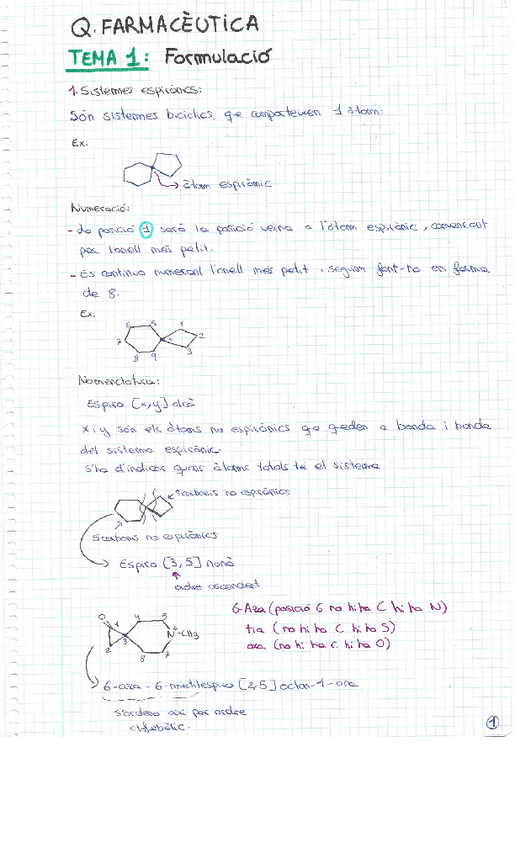 Q. FARMACÈUTICA
TEMA 1: Formulació
1. Sistemes espirònics:
Són sistemes bicíclics que comparteixen 1 àtom:
Ex:
àtom espirònic
Numeració:
- La posició 1 serà la posició veïna a l'àtom espirònic, començant
per l'anell més petit.
- Es continua numerant l'anell més petit i seguim fent-ho en forma
de 8.
Ex:
6 5 1
7 4 2
8 9 3
Nomenclatura:
Espiro [x,y] alcà
x i y són els àtoms no espirònics que queden a banda i banda
del sistema espirònic.
S'ha d'indicar quants àtoms totals té el sistema
3 carbonis no espirònics
5 carbonis no espirònics
Espiro [3,5] nonà
ordre ascendent
6-Aza (posició 6 no hi ha C hi ha N)
tia (no hi ha C hi ha S)
oxa (no hi ha C hi ha O)
O 1 4 5
N-CH3
2 3 8 7
6-aza-6-metilespiro [2,5] octan-1-ona
s'ordena així per ordre
alfabètic.
1